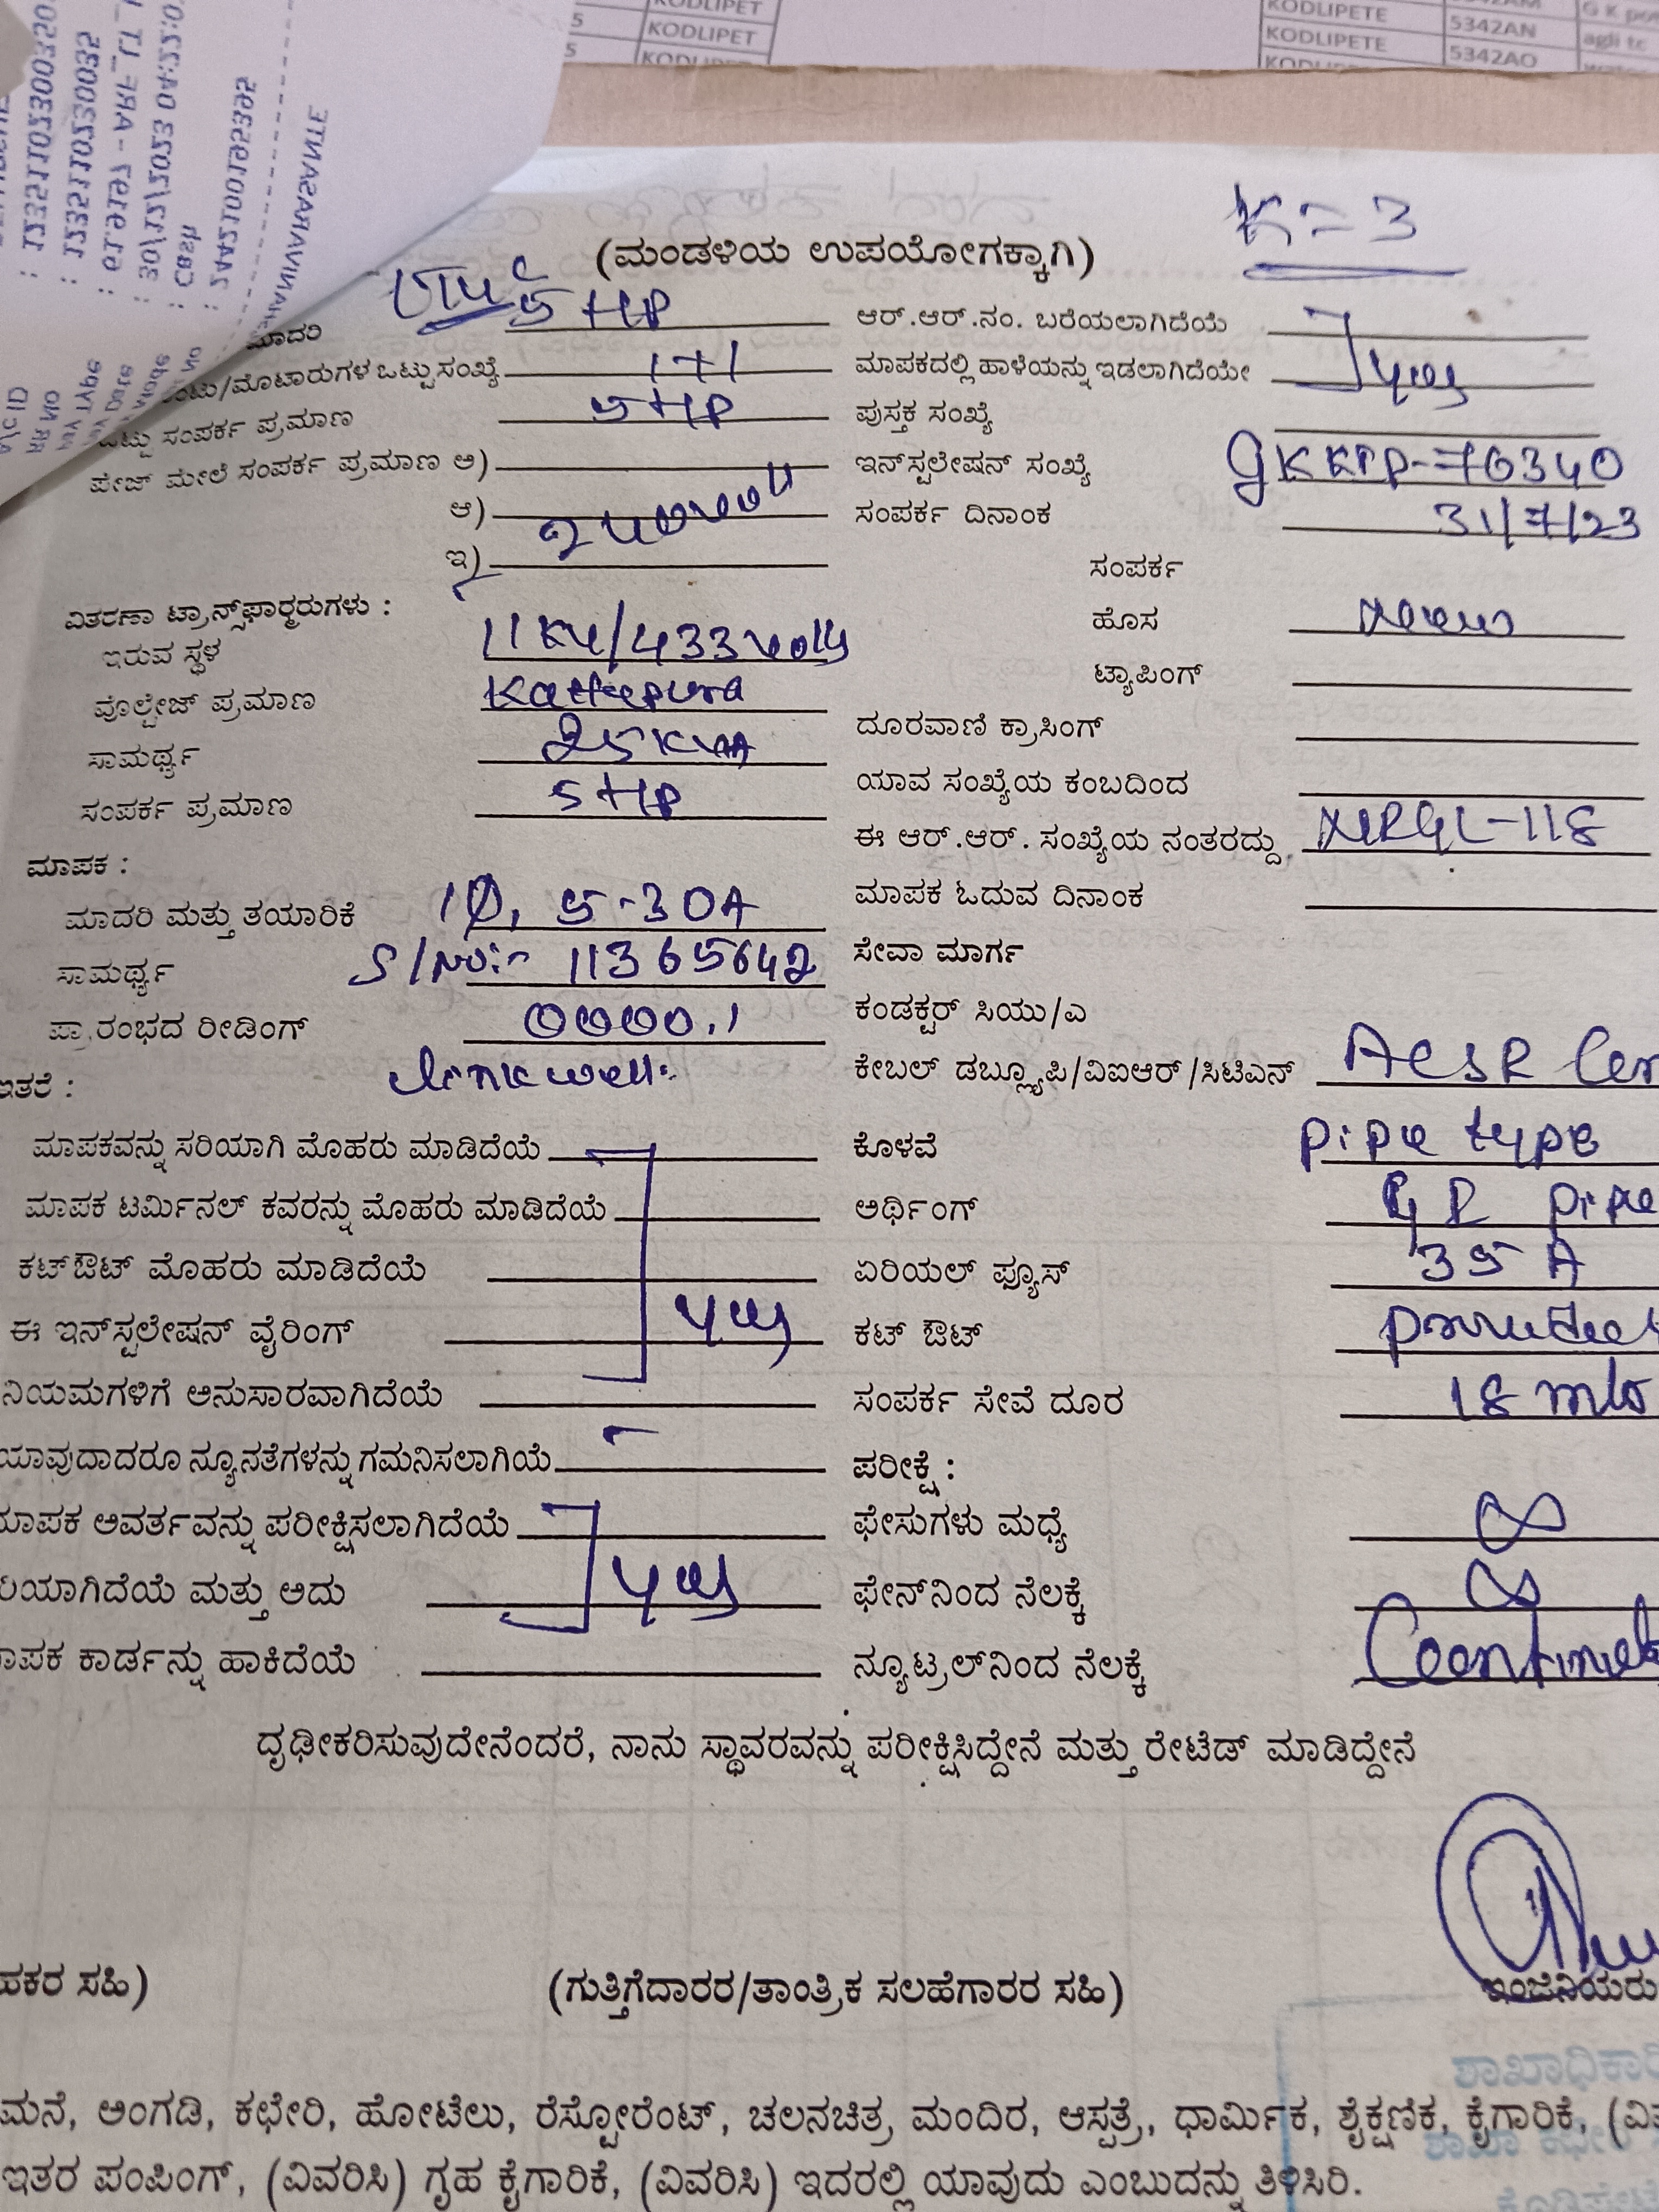 KODLIPET
5 KODLIPET
5 KODLIPET
KODLIPETE 5342AM G K
KODLIPETE 5342AN agli tc
5342AO
: 12351102300350
: 12351102300350
: 6.19.1617 - ARF_LT_
: 30/12/2023 04:22:0
: Cash
K=3
(ಮಂಡಳಿಯ ಉಪಯೋಗಕ್ಕಾಗಿ)
ಮಾದರಿ 5 HP
ಆರ್.ಆರ್.ನಂ. ಬರೆಯಲಾಗಿದೆಯೆ
/ಮೊಟಾರುಗಳ ಒಟ್ಟು ಸಂಖ್ಯೆ 1+1
ಮಾಪಕದಲ್ಲಿ ಹಾಳೆಯನ್ನು ಇಡಲಾಗಿದೆಯೇ yes
ಒಟ್ಟು ಸಂಪರ್ಕ ಪ್ರಮಾಣ 5 HP
ಪುಸ್ತಕ ಸಂಖ್ಯೆ
ಪೇಜ್ ಮೇಲೆ ಸಂಪರ್ಕ ಪ್ರಮಾಣ ಅ)
ಇನ್‌ಸ್ಟಲೇಷನ್ ಸಂಖ್ಯೆ
ಆ)
ಸಂಪರ್ಕ ದಿನಾಂಕ 31/7/23
ಇ)
ಸಂಪರ್ಕ
ವಿತರಣಾ ಟ್ರಾನ್ಸ್‌ಫಾರ್ಮರುಗಳು :
ಹೊಸ
ಇರುವ ಸ್ಥಳ 11 KV/433 volts
ಟ್ಯಾಪಿಂಗ್
ವೊಲ್ಟೇಜ್ ಪ್ರಮಾಣ Kattepura
ದೂರವಾಣಿ ಕ್ರಾಸಿಂಗ್
ಸಾಮರ್ಥ್ಯ 25 KVA
ಯಾವ ಸಂಖ್ಯೆಯ ಕಂಬದಿಂದ
ಸಂಪರ್ಕ ಪ್ರಮಾಣ 5 HP
ಈ ಆರ್.ಆರ್. ಸಂಖ್ಯೆಯ ನಂತರದ್ದು
ಮಾಪಕ :
ಮಾಪಕ ಓದುವ ದಿನಾಂಕ
ಮಾದರಿ ಮತ್ತು ತಯಾರಿಕೆ 1Φ, 5-30A
ಸೇವಾ ಮಾರ್ಗ
ಸಾಮರ್ಥ್ಯ S/No:- 11365642
ಕಂಡಕ್ಟರ್ ಸಿಯು/ಎ
ಪ್ರಾರಂಭದ ರೀಡಿಂಗ್ 0000.1
ಕೇಬಲ್ ಡಬ್ಲ್ಯೂಪಿ/ವಿಐಆರ್/ಸಿಟಿಎನ್ ACSR
ಇತರೆ : Linkwell
ಮಾಪಕವನ್ನು ಸರಿಯಾಗಿ ಮೊಹರು ಮಾಡಿದೆಯೆ
ಕೊಳವೆ pipe type
ಮಾಪಕ ಟರ್ಮಿನಲ್ ಕವರನ್ನು ಮೊಹರು ಮಾಡಿದೆಯೆ
ಅರ್ಥಿಂಗ್ pipe
ಕಟ್‌ಔಟ್ ಮೊಹರು ಮಾಡಿದೆಯೆ
ಏರಿಯಲ್ ಫ್ಯೂಸ್ 35 A
ಈ ಇನ್‌ಸ್ಟಲೇಷನ್ ವೈರಿಂಗ್ yes
ಕಟ್ ಔಟ್ provided
ನಿಯಮಗಳಿಗೆ ಅನುಸಾರವಾಗಿದೆಯೆ
ಸಂಪರ್ಕ ಸೇವೆ ದೂರ 18
ಯಾವುದಾದರೂ ನ್ಯೂನತೆಗಳನ್ನು ಗಮನಿಸಲಾಗಿಯೆ
ಪರೀಕ್ಷೆ :
ಮಾಪಕ ಅವರ್ತವನ್ನು ಪರೀಕ್ಷಿಸಲಾಗಿದೆಯೆ
ಫೇಸುಗಳು ಮಧ್ಯೆ ∞
ರಿಯಾಗಿದೆಯೆ ಮತ್ತು ಅದು yes
ಫೇಸ್‌ನಿಂದ ನೆಲಕ್ಕೆ ∞
ಮಾಪಕ ಕಾರ್ಡನ್ನು ಹಾಕಿದೆಯೆ
ನ್ಯೂಟ್ರಲ್‌ನಿಂದ ನೆಲಕ್ಕೆ
ದೃಢೀಕರಿಸುವುದೇನೆಂದರೆ, ನಾನು ಸ್ಥಾವರವನ್ನು ಪರೀಕ್ಷಿಸಿದ್ದೇನೆ ಮತ್ತು ರೇಟೆಡ್ ಮಾಡಿದ್ದೇನೆ
ಹಕರ ಸಹಿ)
(ಗುತ್ತಿಗೆದಾರರ/ತಾಂತ್ರಿಕ ಸಲಹೆಗಾರರ ಸಹಿ)
ಇಂಜಿನಿಯರು
ಶಾಖಾಧಿಕಾರಿ
ಮನೆ, ಅಂಗಡಿ, ಕಛೇರಿ, ಹೋಟೆಲು, ರೆಸ್ಟೋರೆಂಟ್, ಚಲನಚಿತ್ರ ಮಂದಿರ, ಆಸ್ಪತ್ರೆ, ಧಾರ್ಮಿಕ, ಶೈಕ್ಷಣಿಕ, ಕೈಗಾರಿಕೆ,
ಇತರ ಪಂಪಿಂಗ್, (ವಿವರಿಸಿ) ಗೃಹ ಕೈಗಾರಿಕೆ, (ವಿವರಿಸಿ) ಇದರಲ್ಲಿ ಯಾವುದು ಎಂಬುದನ್ನು ತಿಳಿಸಿರಿ.